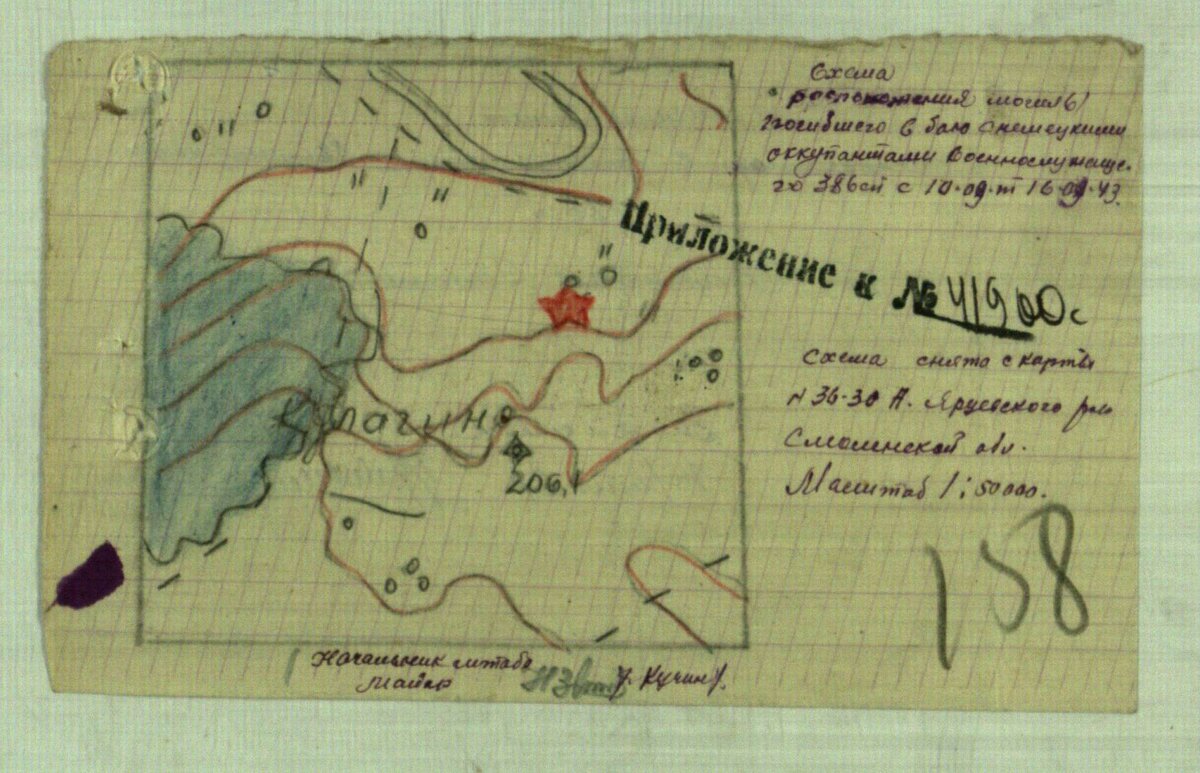 Схема
расположения могилы
погибшего в бою с немецкими
оккупантами военнослужаще-
го 386 сп с 10.09. т 16.09.43.
Приложение к № 41900с
Схема снята с карты
N 36-30 А. Ярцевского р-на
Смоленской обл.
Масштаб 1:50000.
Кулагино
206,1
158
Начальник штаба
Майор /Кучин/.